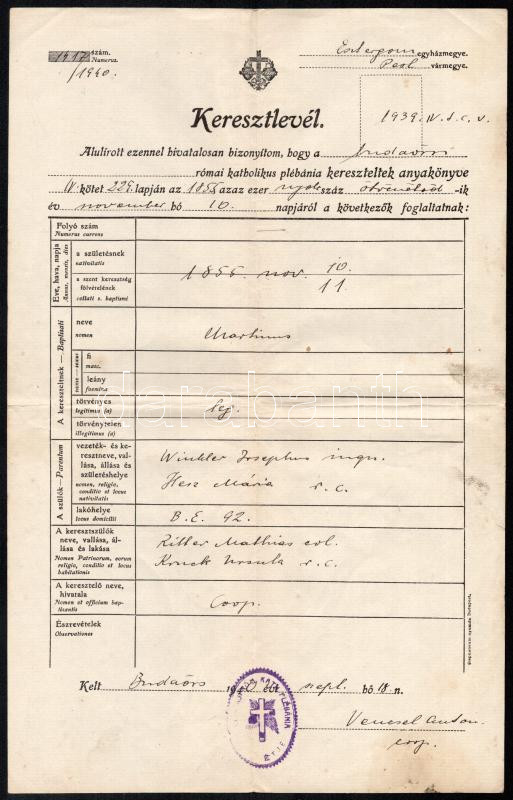 1917 szám.
Numerus.
/1940.
Esztergom egyházmegye.
Pest vármegye.
1939. IV. t. c. v.
Keresztlevél.
Alulírott ezennel hivatalosan bizonyítom, hogy a budaörsi
római katholikus plébánia kereszteltek anyakönyve
IV. kötet 229. lapján az 1855 azaz ezer nyolcszáz ötvenötöd -ik
év november hó 10. napjáról a következők foglaltatnak:
Folyó szám
Numerus currens
Éve, hava, napja
Annus, mensis, dies
a születésnek
nativitatis
a szent keresztség
fölvételének
collati s. baptismi
1855. nov. 10.
11.
A kereszteltnek — Baptisati
neve
nomen
Martinus
fi
masc.
leány
foemina
törvényes
legitimus (a)
leg.
törvénytelen
illegitimus (a)
A szülők — Parentum
vezeték- és ke-
resztneve, val-
lása, állása és
születéshelye
nomen, religio,
conditio et locus
nativitatis
Winkler Josephus inqu.
Hesz Mária r. c.
lakóhelye
locus domicilii
B. E. 92.
A keresztszülők
neve, vallása, ál-
lása és lakása
Nomen Patrinorum, eorum
religio, conditio et locus
habitationis
Ritter Mathias col.
Kruck Ursula r. c.
A keresztelő neve,
hivatala
Nomen et officium bap-
tisantis
Coop.
Észrevételek
Observationes
Stephaneum nyomda Budapest.
Kelt Budaörs 19 évi szept. hó 18. n.
Vencsel Antón
coop.
darabanth